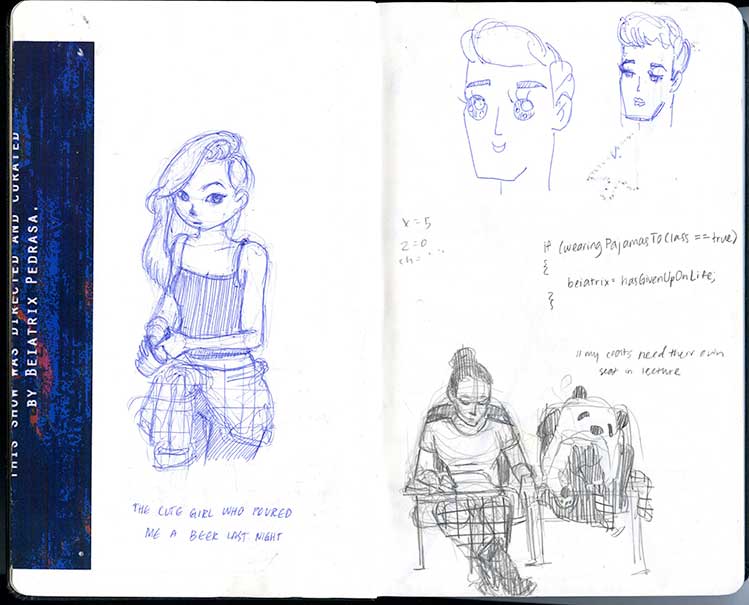 THIS SHOW WAS DIRECTED AND CURATED
BY BEIATRIX PEDRASA.
THE CUTE GIRL WHO POURED
ME A BEER LAST NIGHT
x=5
z=0
ch=
if (wearingPajamasToClass == true)
{
beiatrix = hasGivenUpOnLife;
}
// my coats need their own
seat in lecture